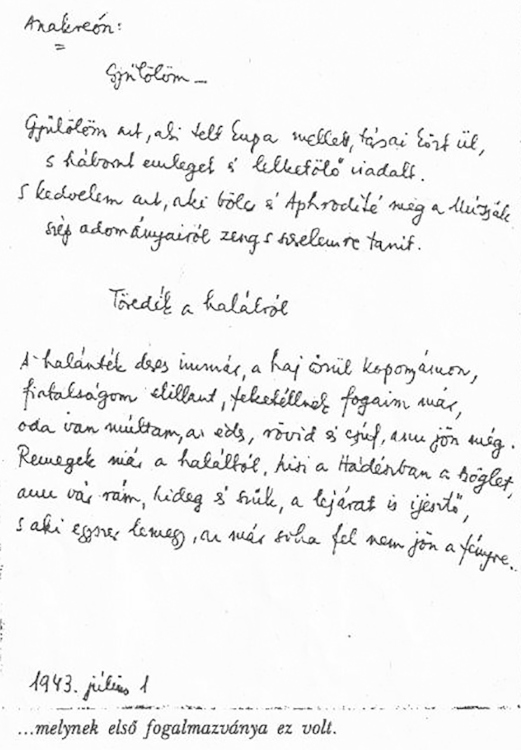 Anakreón:
Gyűlölöm –
Gyűlölöm azt, aki telt kupa mellett, társai közt ül,
s háborut emleget s lelketölő viadalt.
S kedvelem azt, aki bölcs s Aphrodité meg a Múzsák
szép adományairól zeng s szerelemre tanit.
Töredék a halálról
A halánték deres immár, a haj őszül koponyámon,
fiatalságom elillant, feketéllnek fogaim már,
oda van múltam, az édes, rövid s csúf, ami jön még.
Remegek már a haláltól, hisz a Hádészban a szöglet,
ami vár rám, hideg s szűk, a lejárat is ijesztő,
s aki egyszer lemegy, az már soha fel nem jön a fényre.
1943. július 1
...melynek első fogalmazványa ez volt.